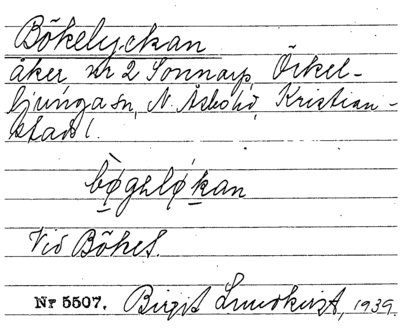 Bökelyckan
åker nr 2 Sonnarp, Örkel-
ljunga sn, N. Åsbo hd, Kristian-
stads l.
bø̀gəlø̀kan
Vid Böket.
Nr 5507. Birgit Lundkvist, 1939.